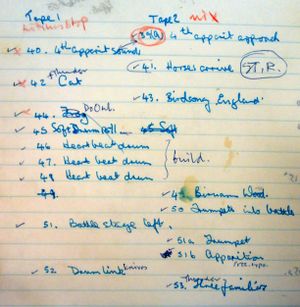 Tape 1 Tape 2 MIX
39(a) 4th apparit approach
40. 4th apparit sounds
41. Horses arrive ST.R.
Thunder
42 Cat
43. Birdsong England.
44. Do Owl.
45 Soft Drum roll
46 Heart beat drum
47. Heart beat drum build.
48 Heart beat drum
49 Birnam Wood.
50 Trumpets into battle
51. Battle stage left.
51a Trumpet
51b Apparition
52 Drum link
Thunder
53. Three familiars